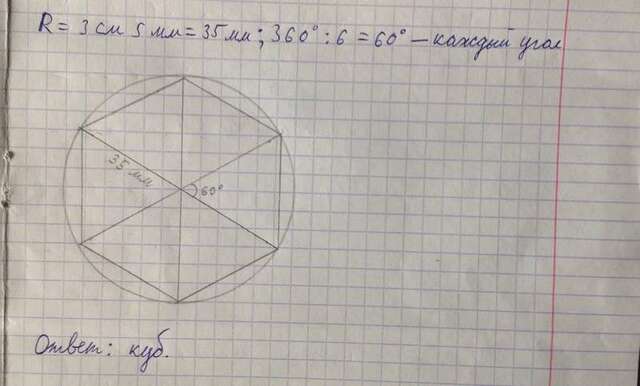 R = 3 см 5 мм = 35 мм; 360° : 6 = 60° — каждый угол
35 мм
60°
Ответ: куб.